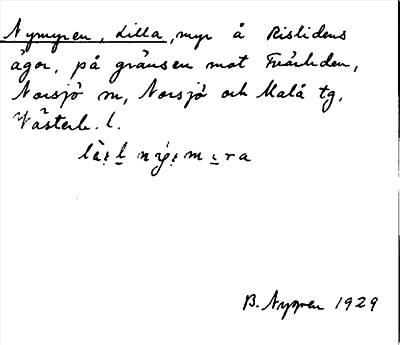 Nymyren, Lilla, myr å Rislidens
ägor, på gränsen mot Svärliden,
Norsjö sn, Norsjö och Malå tg,
Västerb. l.
B. Nygren 1929